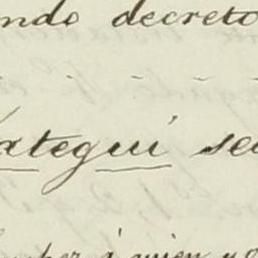 ndo decreto
ategui se
á quien